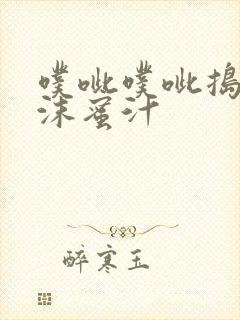 噗呲噗呲搗
沫蜜汁
醉寒玉